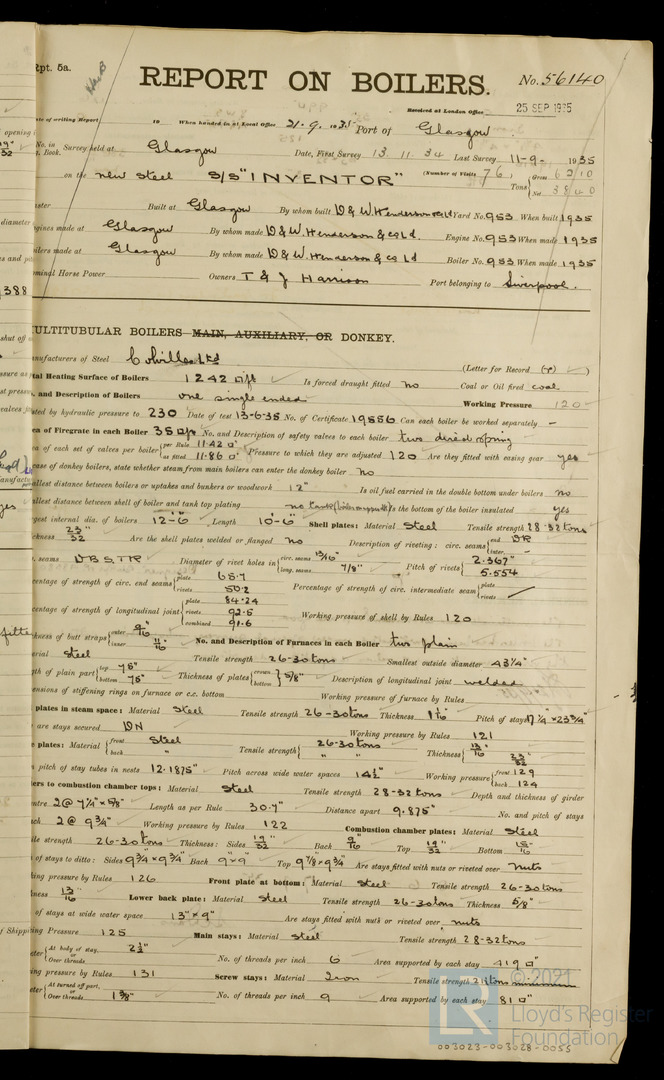 Rpt. 5a.
REPORT ON BOILERS.
No. 56140
Received at London Office
25 SEP 1935
Date of writing Report 19 When handed in at Local Office 21.9.1935 Port of Glasgow
No. in Survey held at Glasgow Date, First Survey 13.11.34 Last Survey 11-9-1935
Book.
on the new steel S/S "INVENTOR" (Number of Visits 76) Gross 6210
Tons Net 3840
Built at Glasgow By whom built D & W. Henderson & Co Ld Yard No. 953 When built 1935
Engines made at Glasgow By whom made D & W. Henderson & Co Ld. Engine No. 953 When made 1935
Boilers made at Glasgow By whom made D & W. Henderson & Co Ld Boiler No. 953 When made 1935
Nominal Horse Power Owners T & J Harrison Port belonging to Liverpool.
MULTITUBULAR BOILERS MAIN, AUXILIARY, OR DONKEY.
Manufacturers of Steel Colvilles Ltd
(Letter for Record (r) )
Total Heating Surface of Boilers 1242 □ft Is forced draught fitted no Coal or Oil fired coal
No. and Description of Boilers one single ended Working Pressure 120
Tested by hydraulic pressure to 230 Date of test 13-6-35 No. of Certificate 19556 Can each boiler be worked separately -
Area of Firegrate in each Boiler 35 □ft No. and Description of safety valves to each boiler two direct spring
Area of each set of valves per boiler per Rule 11.42 □" as fitted 11.86 □" Pressure to which they are adjusted 120 Are they fitted with easing gear yes
In case of donkey boilers, state whether steam from main boilers can enter the donkey boiler no
Smallest distance between boilers or uptakes and bunkers or woodwork 12" Is oil fuel carried in the double bottom under boilers no
Smallest distance between shell of boiler and tank top plating no tank Is the bottom of the boiler insulated yes
Largest internal dia. of boilers 12-6" Length 10-6" Shell plates: Material Steel Tensile strength 28-32 tons
Thickness 23/32 Are the shell plates welded or flanged no Description of riveting: circ. seams end DR inter. -
long. seams DBS, TR Diameter of rivet holes in circ. seams 13/16" long. seams 7/8" Pitch of rivets 2.367" 5.554
Percentage of strength of circ. end seams plate 65.7 rivets 50.2 Percentage of strength of circ. intermediate seam plate rivets
Percentage of strength of longitudinal joint plate 84.24 rivets 92.5 combined 91.6 Working pressure of shell by Rules 120
Thickness of butt straps outer 9/16 inner 11/16 No. and Description of Furnaces in each Boiler two plain
Material Steel Tensile strength 26-30 tons Smallest outside diameter 43 1/4"
Length of plain part top 75" bottom 75" Thickness of plates crown bottom 5/8" Description of longitudinal joint welded
Dimensions of stiffening rings on furnace or c.c. bottom Working pressure of furnace by Rules
plates in steam space: Material Steel Tensile strength 26-30 tons Thickness 1 1/16 Pitch of stays 17 1/4" x 23 3/4"
are stays secured DN Working pressure by Rules 121
plates: Material front Steel back " Tensile strength 26-30 tons " " Thickness 13/16 23/32
pitch of stay tubes in nests 12.1875" Pitch across wide water spaces 14 1/2" Working pressure front 129 back 124
Girders to combustion chamber tops: Material Steel Tensile strength 28-32 tons Depth and thickness of girder
centre 2 @ 7 1/4" x 5/8" Length as per Rule 30.7" Distance apart 9.875" No. and pitch of stays
each 2 @ 9 3/4" Working pressure by Rules 122 Combustion chamber plates: Material Steel
Tensile strength 26-30 tons Thickness: Sides 19/32 Back 9/16 Top 19/32 Bottom 15/16
Pitch of stays to ditto: Sides 9 3/4 x 9 3/4 Back 9" x 9" Top 9 7/8 x 9 3/4 Are stays fitted with nuts or riveted over nuts
Working pressure by Rules 126 Front plate at bottom: Material Steel Tensile strength 26-30 tons
Thickness 13/16 Lower back plate: Material Steel Tensile strength 26-30 tons Thickness 5/8"
Pitch of stays at wide water space 13" x 9" Are stays fitted with nuts or riveted over nuts
Working Pressure 125 Main stays: Material Steel Tensile strength 28-32 tons
Diameter At body of stay, or Over threads 2 1/2" No. of threads per inch 6 Area supported by each stay 419 □"
Working pressure by Rules 131 Screw stays: Material Iron Tensile strength 21 1/2 tons minimum
Diameter At turned off part, or Over threads 1 3/8" No. of threads per inch 9 Area supported by each stay 81 □"
© 2021
Lloyd's Register
Foundation
003023-003028-0055